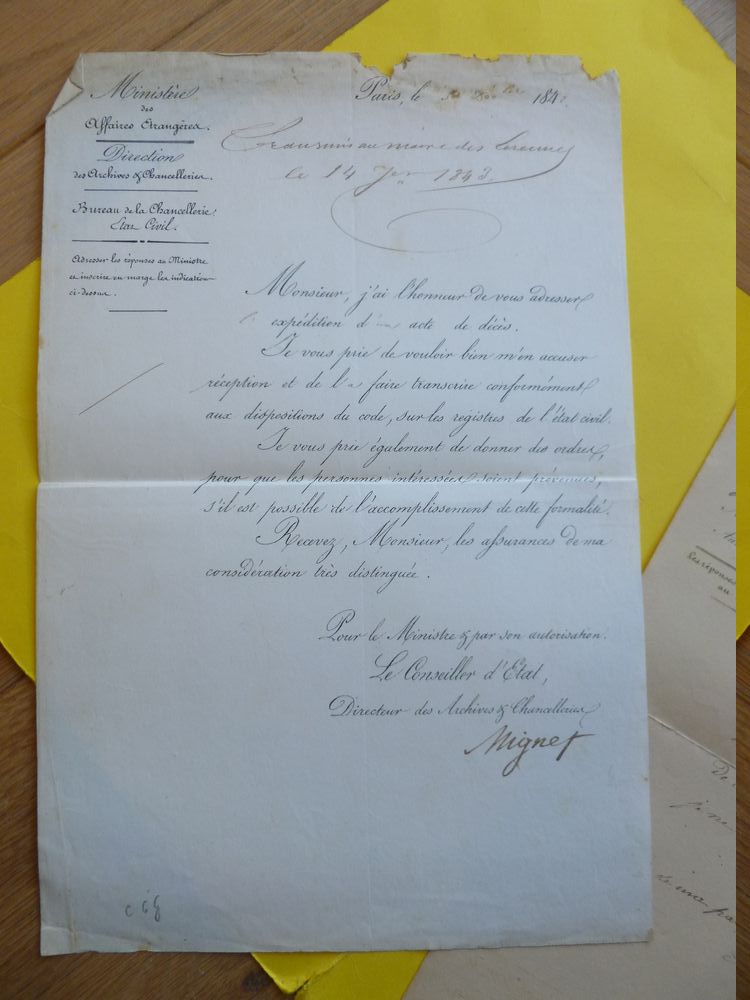 Ministère
des
Affaires Etrangères.
Direction
des Archives & Chancelleries.
Bureau de la Chancellerie
Etat Civil.
Adresser les réponses au Ministre
et inscrire en marge les indications
ci-dessus.
Paris, le 184
Transmis au maire des
le 14 Jer 1843.
Monsieur, j'ai l'honneur de vous adresser
expédition d'un acte de décès.
Je vous prie de vouloir bien m'en accuser
réception et de l a faire transcrire conformément
aux dispositions du code, sur les registres de l'état civil.
Je vous prie également de donner des ordres,
pour que les personnes intéressées soient prévenues,
s'il est possible de l'accomplissement de cette formalité.
Recevez, Monsieur, les assurances de ma
considération très distinguée.
Pour le Ministre & par son autorisation.
Le Conseiller d'Etat,
Directeur des Archives & Chancelleries
Mignet
c 68
Les réponses
au
De